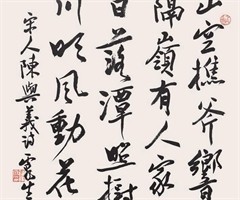 山空樵斧響
隔嶺有人家
日落潭照樹
川明風動花
宋人陳與義詩 生